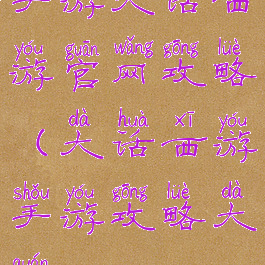 手游大话西
yóu guān wǎng gōng lüè
游官网攻略
dà huà xī yóu
（大话西游
shǒu yóu gōng lüè dà
手游攻略大
quán